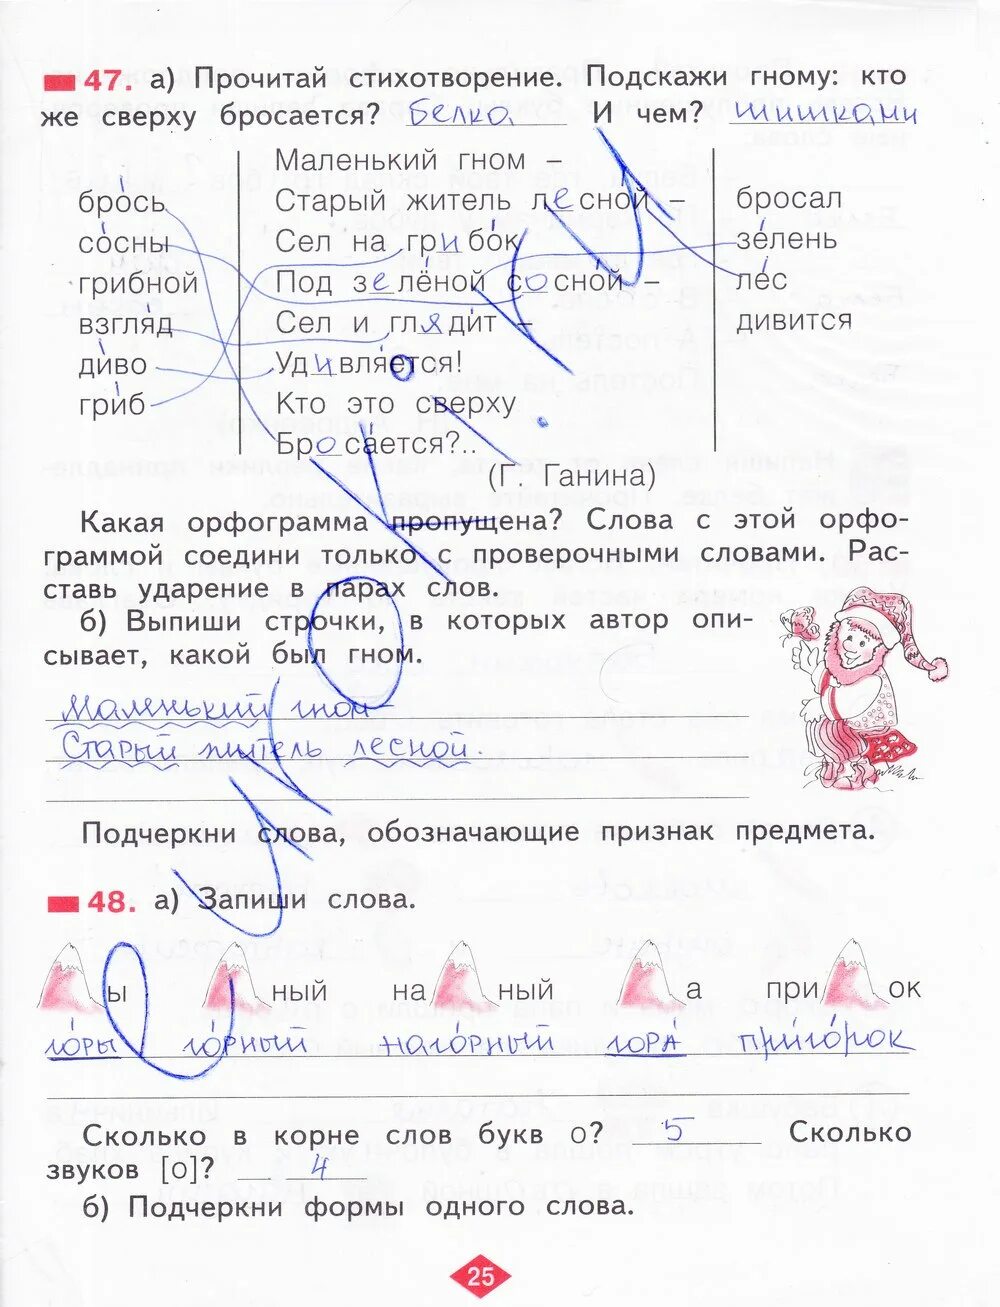 47. а) Прочитай стихотворение. Подскажи гному: кто
же сверху бросается? белка И чем? шишками
Маленький гном –
брось Старый житель лесной – бросал
со́сны Сел на грибо́к зе́лень
грибной Под зелёной сосно́й – лес
взгляд Сел и гляди́т – дивится
ди́во Удивля́ется!
гриб Кто это сверху
Броса́ется?..
(Г. Ганина)
Какая орфограмма пропущена? Слова с этой орфо-
граммой соедини только с проверочными словами. Рас-
ставь ударение в парах слов.
б) Выпиши строчки, в которых автор опи-
сывает, какой был гном.
Маленький гном –
Старый житель лесной.
Подчеркни слова, обозначающие признак предмета.
48. а) Запиши слова.
ы ный на ный а при ок
го́ры го́рный наго́рный гора́ при́го́рок
Сколько в корне слов букв о? 5 Сколько
звуков [о]? 4
б) Подчеркни формы одного слова.
25